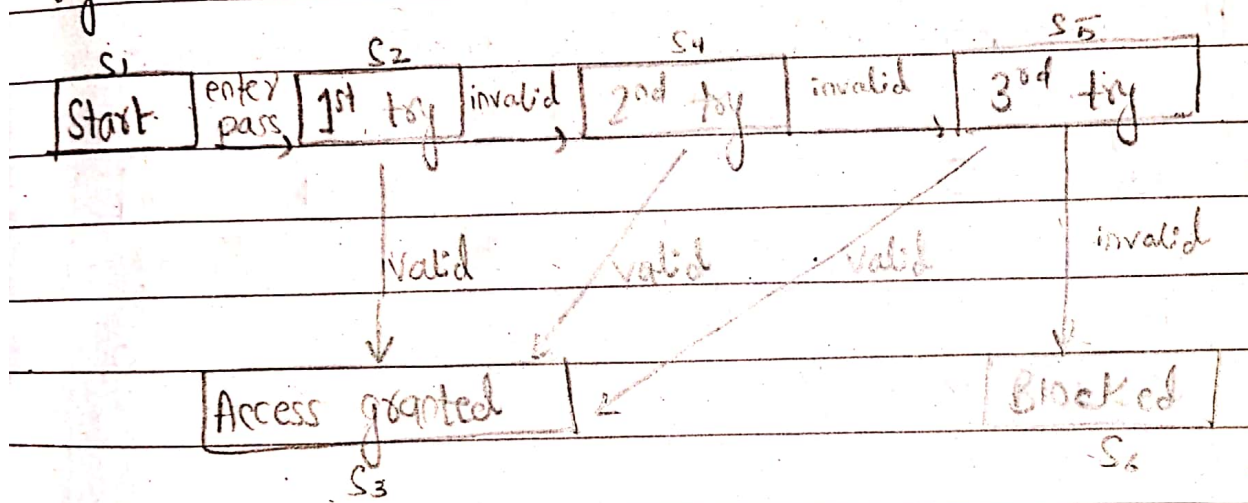 S1 S2 S4 S5
Start enter pass 1st try invalid 2nd try invalid 3rd try
valid valid valid invalid
Access granted Blocked
S3 S6